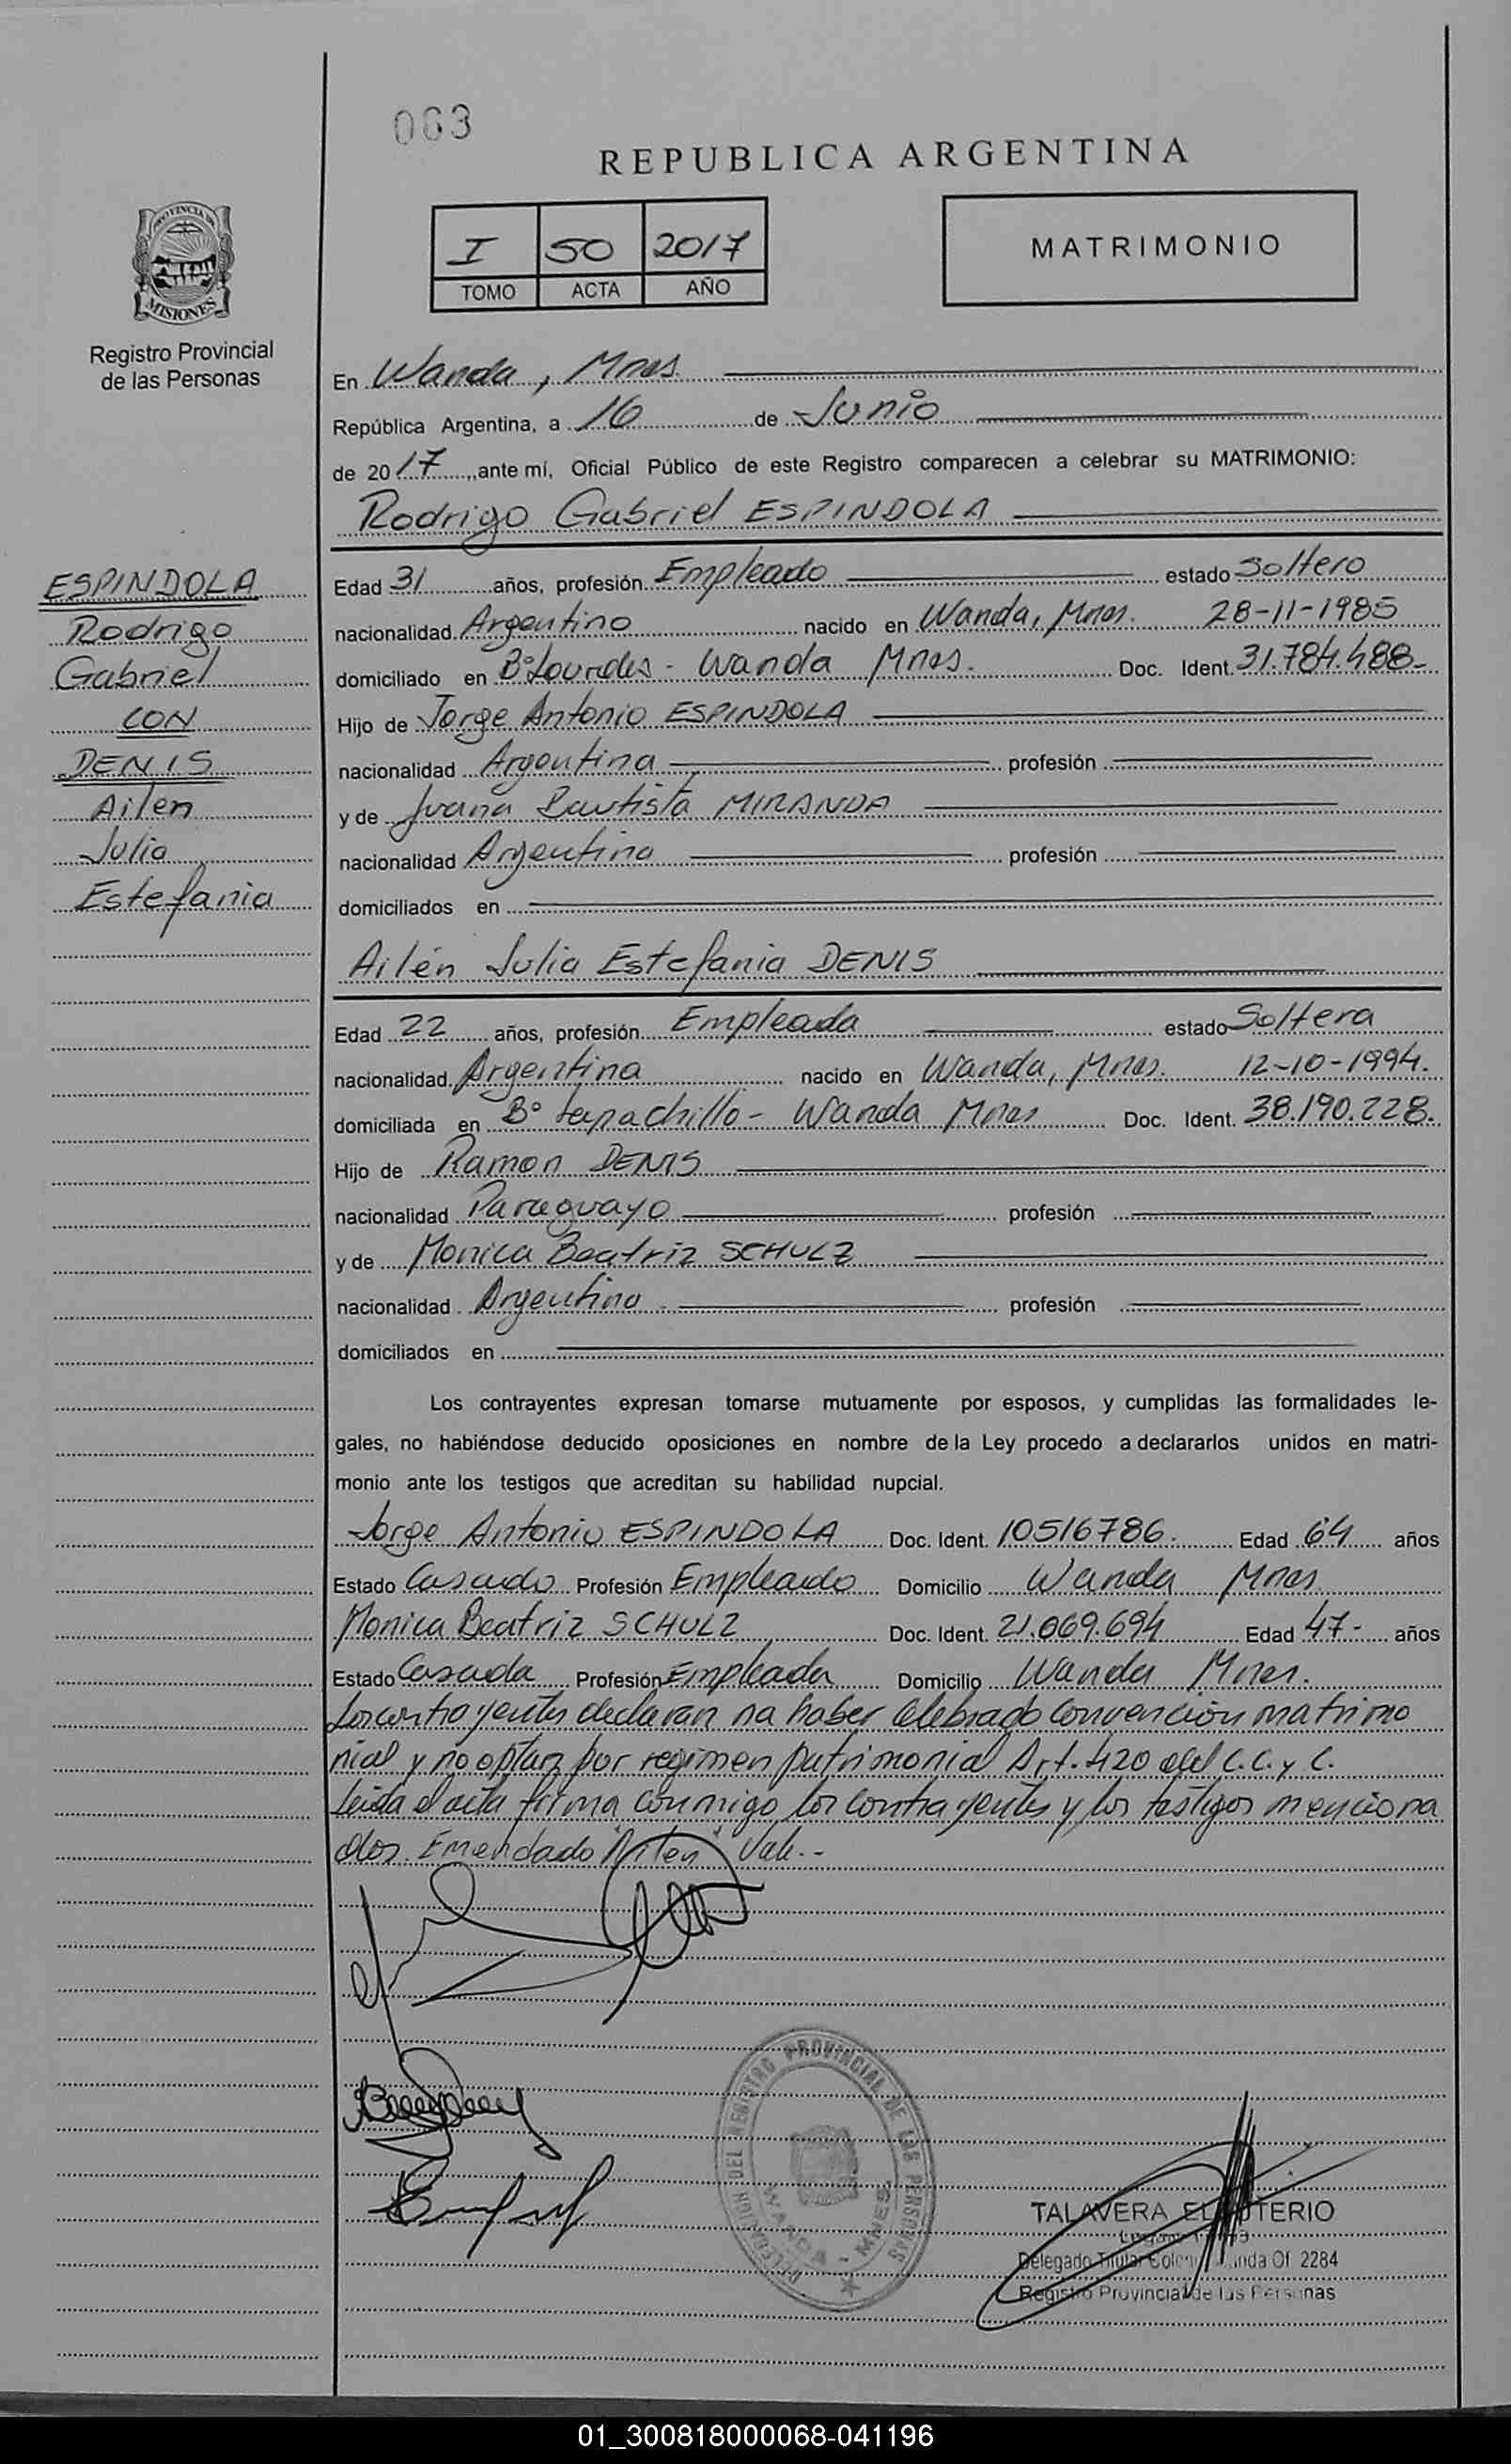 063
REPUBLICA ARGENTINA
I 50 2017
TOMO ACTA AÑO
MATRIMONIO
PROVINCIA DE
MISIONES
Registro Provincial
de las Personas
ESPINDOLA
Rodrigo
Gabriel
CON
DENIS
Ailen
Julia
Estefania
En Wanda, Mnes.
República Argentina, a 16 de Junio
de 2017, ante mí, Oficial Público de este Registro comparecen a celebrar su MATRIMONIO:
Rodrigo Gabriel ESPINDOLA
Edad 31 años, profesión Empleado estado Soltero
nacionalidad Argentino nacido en Wanda, Mnes. 28-11-1985
domiciliado en B° Lourdes - Wanda Mnes. Doc. Ident. 31.784.488-
Hijo de Jorge Antonio ESPINDOLA
nacionalidad Argentina profesión
y de Juana Bautista MIRANDA
nacionalidad Argentina profesión
domiciliados en
Ailén Julia Estefania DENIS
Edad 22 años, profesión Empleada estado Soltera
nacionalidad Argentina nacido en Wanda, Mnes. 12-10-1994.
domiciliada en B° tapachillo - Wanda Mnes Doc. Ident. 38.190.228.
Hijo de Ramon DENIS
nacionalidad Paraguayo profesión
y de Monica Beatriz SCHULZ
nacionalidad Argentina profesión
domiciliados en
Los contrayentes expresan tomarse mutuamente por esposos, y cumplidas las formalidades le-
gales, no habiéndose deducido oposiciones en nombre de la Ley procedo a declararlos unidos en matri-
monio ante los testigos que acreditan su habilidad nupcial.
Jorge Antonio ESPINDOLA Doc. Ident. 10516786. Edad 64 años
Estado Casado Profesión Empleado Domicilio Wanda Mnes
Monica Beatriz SCHULZ Doc. Ident. 21.069.694 Edad 47- años
Estado Casada Profesión Empleada Domicilio Wanda Mnes.
Los contrayentes declaran na haber celebrado convención matrimo
nial y no optan por regimen patrimonial Art. 420 del C.C. y C.
Leida el acta firma conmigo los contrayentes y los testigos menciona
dos. Emendado "Ailen" Vale.-
DELEGACION DEL REGISTRO PROVINCIAL DE LAS PERSONAS
WANDA - MNES
TALAVERA ELEUTERIO
Delegado Titular Of. 2284
Registro Provincial de las Personas
01_300818000068-041196